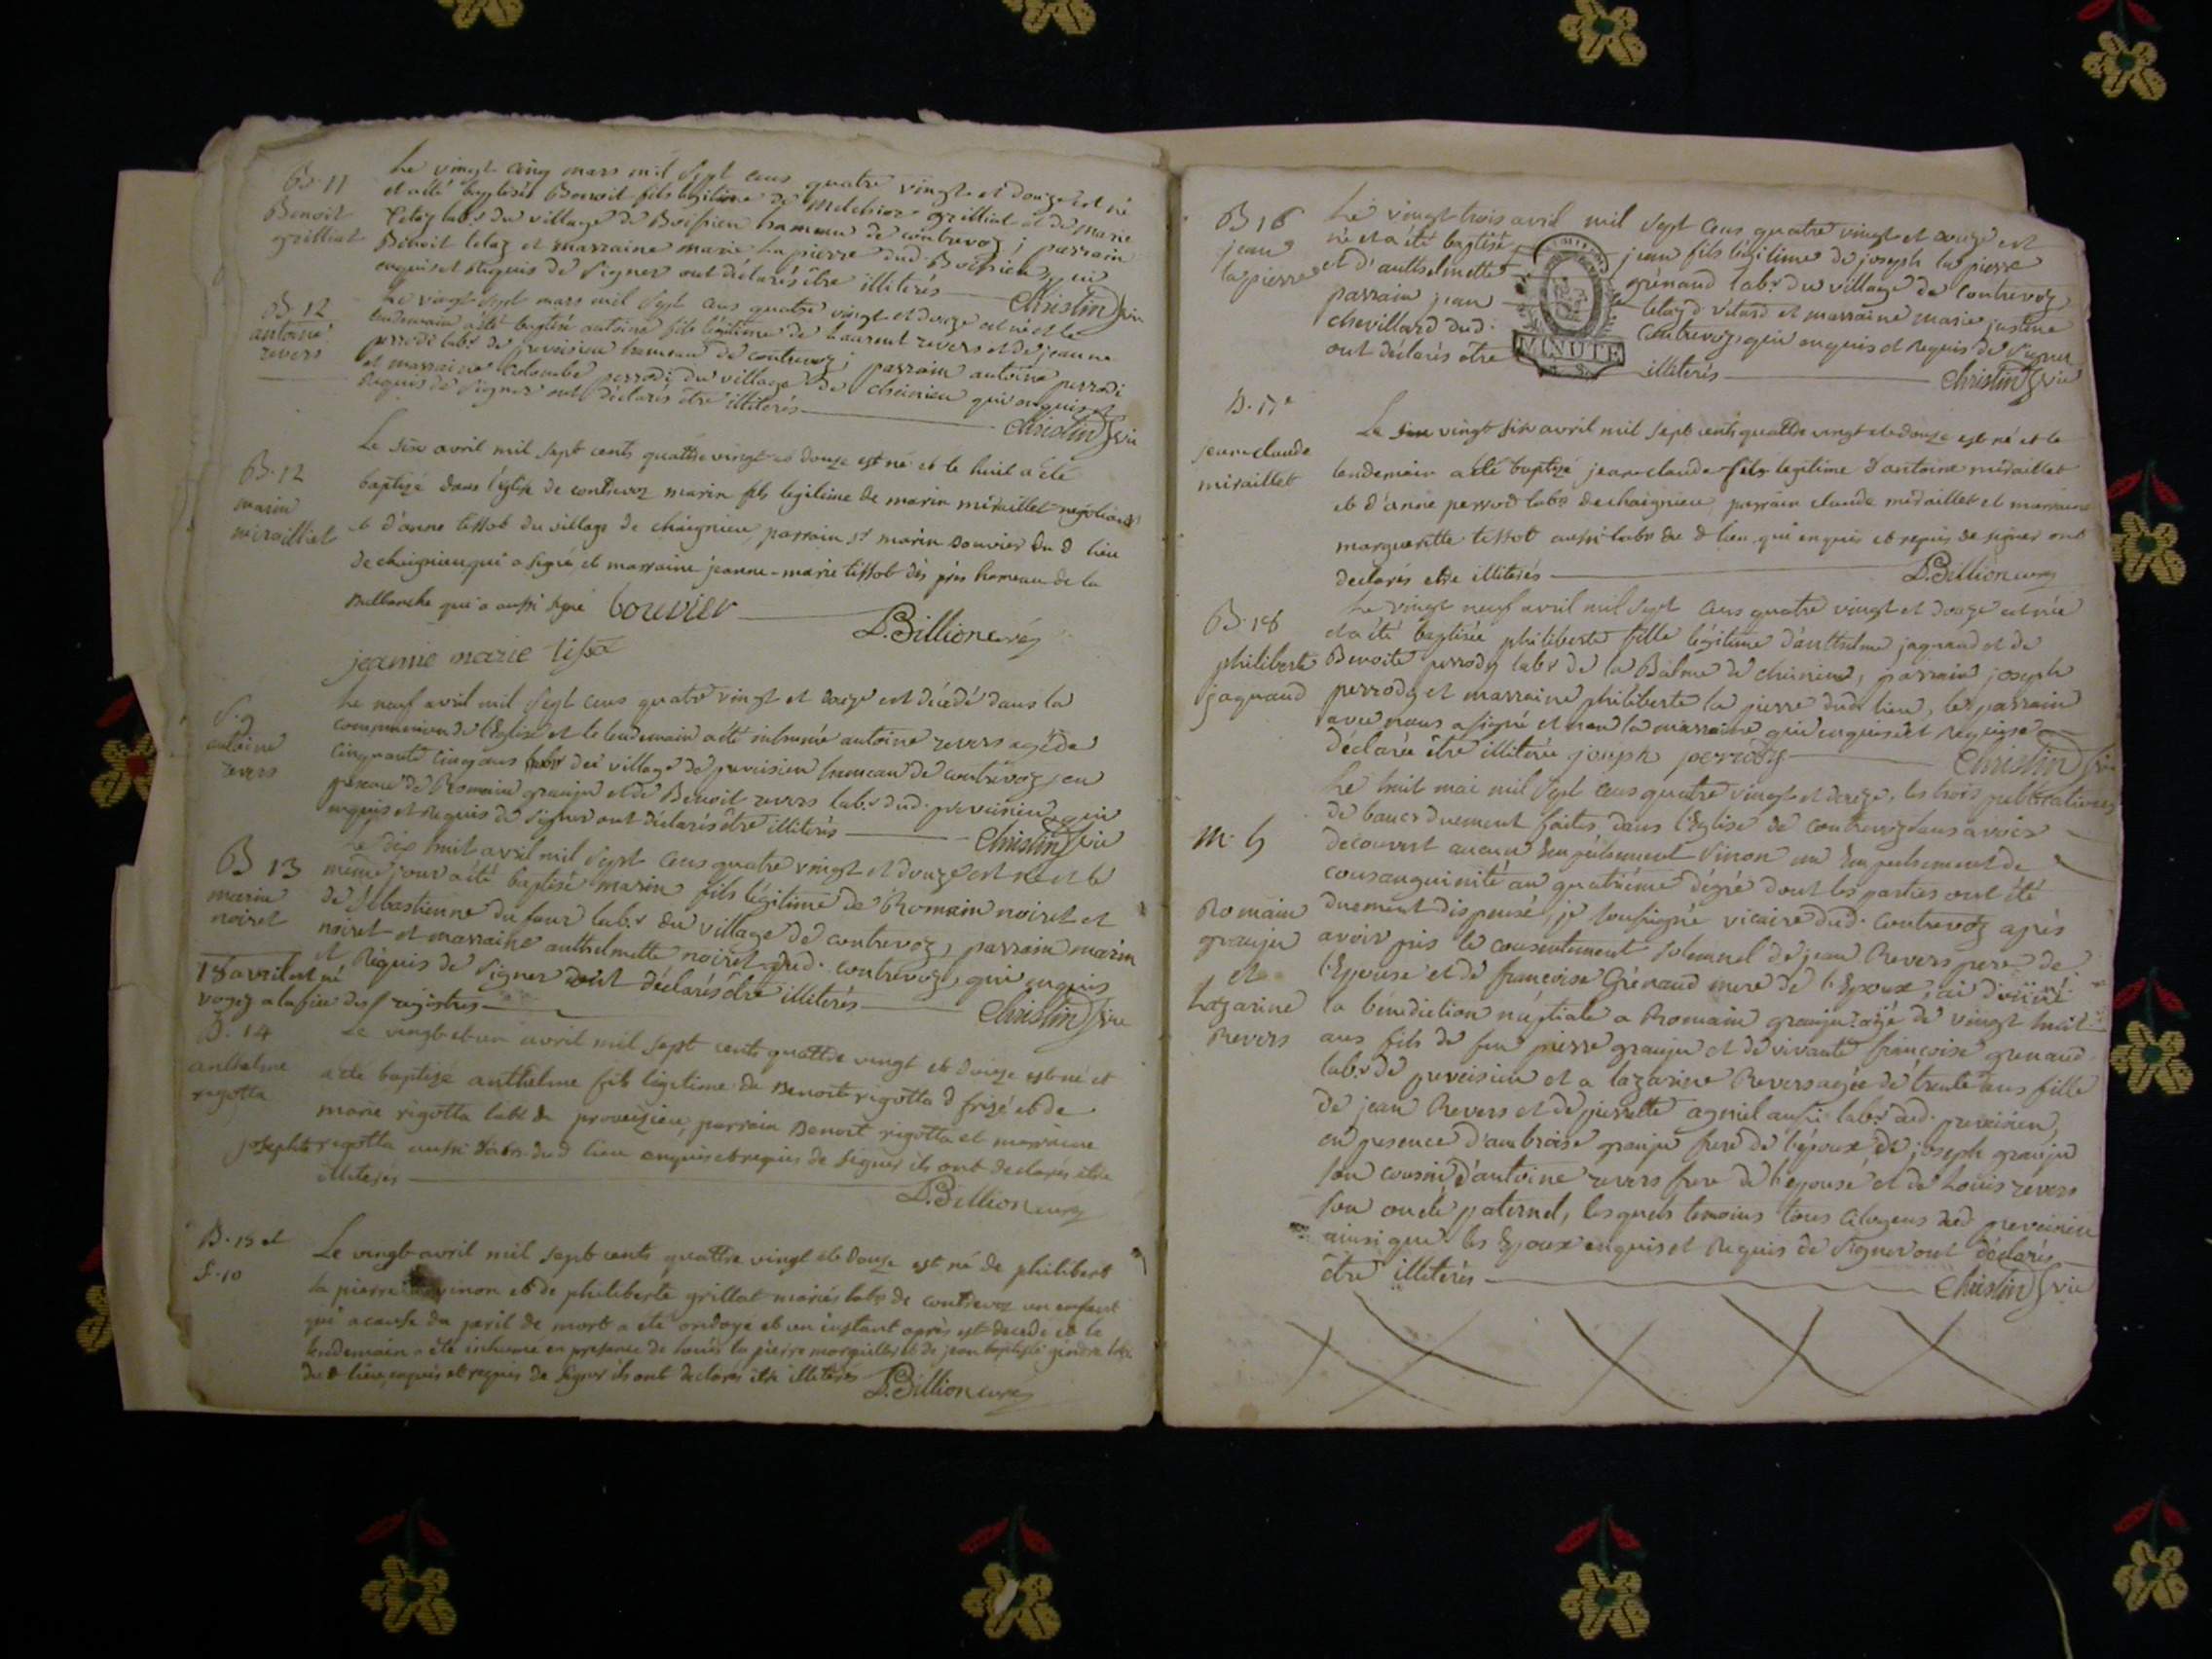 B. 11
Benoit
grilliat
Le vingt cinq mars mil sept cens quatre vingt et douze est né
et a été baptisé Benoit fils légitime de Melchior grilliat et de marie
tetaz lab.r du village de Boissieu hameau de contrevoz ; parrain
Benoit tetaz et marraine marie la pierre dud. Boissieu qui
enquis et Requis de signer ont déclarés être illiterés
Christin vic
B. 12
antoine
revers
Le vingt sept mars mil sept cens quatre vingt et douze est né et le
lendemain a été baptisé antoine fils légitime de Laurent revers et de jeanne
perrodi lab.r de preveisieu hameau de contrevoz ; parrain antoine perrodi
et marraine colombe perrodi du village de cheinieu qui enquis et
Requis de signer ont déclarés être illiterés
Christin vic
B. 12
marin
miralliet
Le six avril mil sept cents quattre vingt et douze est né et le huit a été
baptizé dans l'église de contrevoz marin fils legitime de marin miraillet negotiant
et d'anne tissot du village de chaignieu, parrain s.r marin bouvier du d lieu
de chaignieu qui a signé et marraine jeanne-marie tissot des prés hameau de la
Bullanche qui a aussi signé bouvier
D. Billion curé
jeanne marie tissot
S. 9
antoine
revers
Le neuf avril mil sept cens quatre vingt et douze est décédé dans la
communion de l'Eglise et le lendemain a été inhumé antoine revers agé de
cinquante cinq ans lab.r du village de preveisieu hameau de contrevoz en
presence de Romain granju et de Benoit revers lab.r dud. preveisieu qui
enquis et Requis de signer ont déclarés être illiterés
Christin vic
B 13
marin
noiret
Le dix huit avril mil sept cens quatre vingt et douze est né et le
même jour a été baptisé marin fils légitime de Romain noiret et
de sébastienne du four lab.r du village de contrevoz, parrain marin
noiret et marraine anthelmette noiret dud. contrevoz, qui enquis
et Requis de signer ont déclarés être illiterés
Christin vic
18 avril est né
voyez a la fin des registres
B. 14
anthelme
rigotta
Le vingt et un avril mil sept cents quattre vingt et douze est né et
a été baptizé anthelme fils légitime de Benoit rigotta d frizé et de
marie rigotta lab.r de proveizieu, parrain Benoit rigotta et marraine
josephte rigotta aussi lab.rs du d lieu enquis et requis de signer ils ont declarés être
illiterés
D. Billion curé
B. 15 et
S. 10
Le vingt avril mil sept cents quattre vingt et douze est né de philibert
la pierre et de philiberte grillat mariés lab.rs de contrevoz un enfant
qui a cause du peril de mort a été ondoyé et un instant après est decedé et le
lendemain a été inhumé en presence de louis la pierre marguillier et de jean baptiste
du d lieu, enquis et requis de signer ils ont declarés être illiterés
D. Billion curé
B 16
jean
la pierre
Le vingt trois avril mil sept cens quatre vingt et douze est
né et a été baptisé jean fils légitime de joseph la pierre
et d'anthelmette grénaud lab.r du village de contrevoz
parrain jean tetaz d. vitard et marraine marie justine
chevillard dud. contrevoz qui enquis et Requis de signer
ont déclarés être illiterés
MINUTE
Christin vic
B. 17e
jean claude
miraillet
Le vingt six avril mil sept cents quattre vingt et douze est né et le
lendemain a été baptizé jean claude fils legitime d'antoine miraillet
et d'anne perrod lab.rs de chaignieu, parrain claude miraillet et marraine
margueritte tissot aussi lab.rs du d lieu, qui enquis et requis de signer ont
declarés etre illiterés
D. Billion curé
B. 18
philiberte
jaquaud
Le vingt neuf avril mil sept cens quatre vingt et douze est née
et a été baptisée philiberte fille légitime d'anthelme jaquaud et de
Benoite perrody lab.r de la Balme de cheinieu, parrain joseph
perrody et marraine philiberte la pierre dud. lieu, le parrain
avec nous a signé et non la marraine qui enquise et Requise a
déclarée être illiterée joseph perrody
Christin vic
M. 5
Romain
granju
et
Lazarine
Revers
Le huit mai mil sept cens quatre vingt et douze, les trois publications
de bancs duement faites dans l'Eglise de contrevoz sans avoir
découvert aucun Empêchement sinon un Empechement de
consanguinité au quatriéme dégré dont les parties ont été
duement dispensé, je soussigné vicaire dud. contrevoz après
avoir pris le consentement solemnel de jean Revers pere de
l'Epouse et de françoise Grénaud mere de l'Epoux, ai donné
la bénédiction nuptiale a Romain granju agé de vingt huit
ans fils de feu pierre granju et de vivante françoise grenaud
lab.r de preveisieu et a lazarine Revers agée de trente ans fille
de jean Revers et de pierrette agniel aussi lab.r dud. preveisieu,
en presence d'ambroise granju frere de l'époux, de joseph granju
son cousin, d'antoine revers frere de l'epouse et de Louis revers
son oncle paternel, lesquels temoins tous citoyens dud. preveisieu
ainsi que les Epoux enquis et Requis de signer ont déclarés
être illiterés
Christin vic